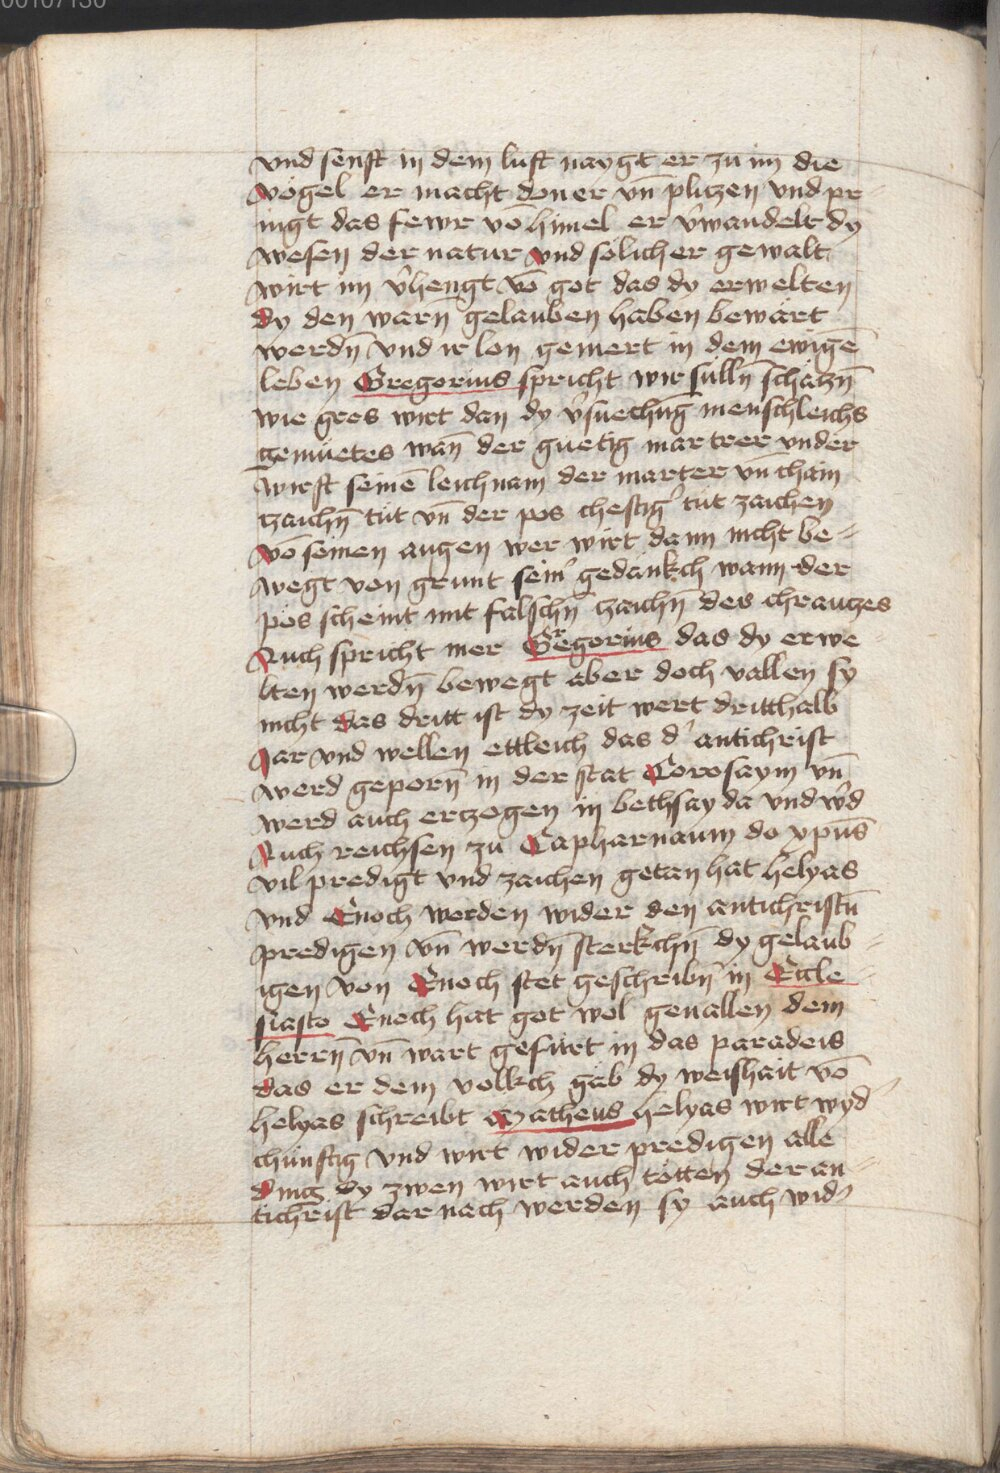 00107150
vnd senft in dem luft naygt er zu im die
vögel er macht doner vn̄ plitzen vnd pr-
ingt das fewr vō himel er v̉wandelt dy
wesen der natur vnd sölicher gewalt
wirt im v̉hengt vō got das dy erwelten
dy den warn̄ gelauben haben bewärt
werdn̄ vnd ir lon gemert in dem ewigē
leben Gregorius spricht wir sülln̄ schätzn̄
wie gros wirt dan dy v̉suechūg menschleichs
gemüetes wan̄ der guetig martrer vnder
wirft seinē leichnam der marter vn̄ chain
zaichn̄ tüt vn̄ der pos chestiġ tüt zaichen
vō seinen augen wer wirt dann nicht be-
wegt von grunt seinˀ gedankch wann der
pös scheint mit falschn̄ zaichn̄ des chrautzes
Auch spricht mer Gregorius das dy erwe-
lten werdn̄ bewegt aber doch vallen sy
nicht das dritt ist dy zeit wert dritthalb
Jar vnd wellen ettleich das dˀ antichrist
werd geporn̄ in der stat Corosaym vn̄
werd auch erzogen in bethsayda vnd wˀd
Auch reichsen zu Capharnaum do xpūs
vil predigt vnd zaichen getan hat helyas
vnd Enoch werden wider den antichristū
predigen vn̄ werdn̄ sterkchn̄ dy gelaub-
igen von Enoch stet geschribn̄ in Eccle-
siasto Enoch hat got wol geuallen dem
herrn̄ vn̄ wart gefürt in das paradeis
das er dem volkch gäb dy weishait vō
helyas schreibt Matheus helyas wirt wyd
chünftig vnd wirt wider predigen alle
ding dy zwen wirt auch tötten der an-
tichrist dar nach werden sy auch widˀ